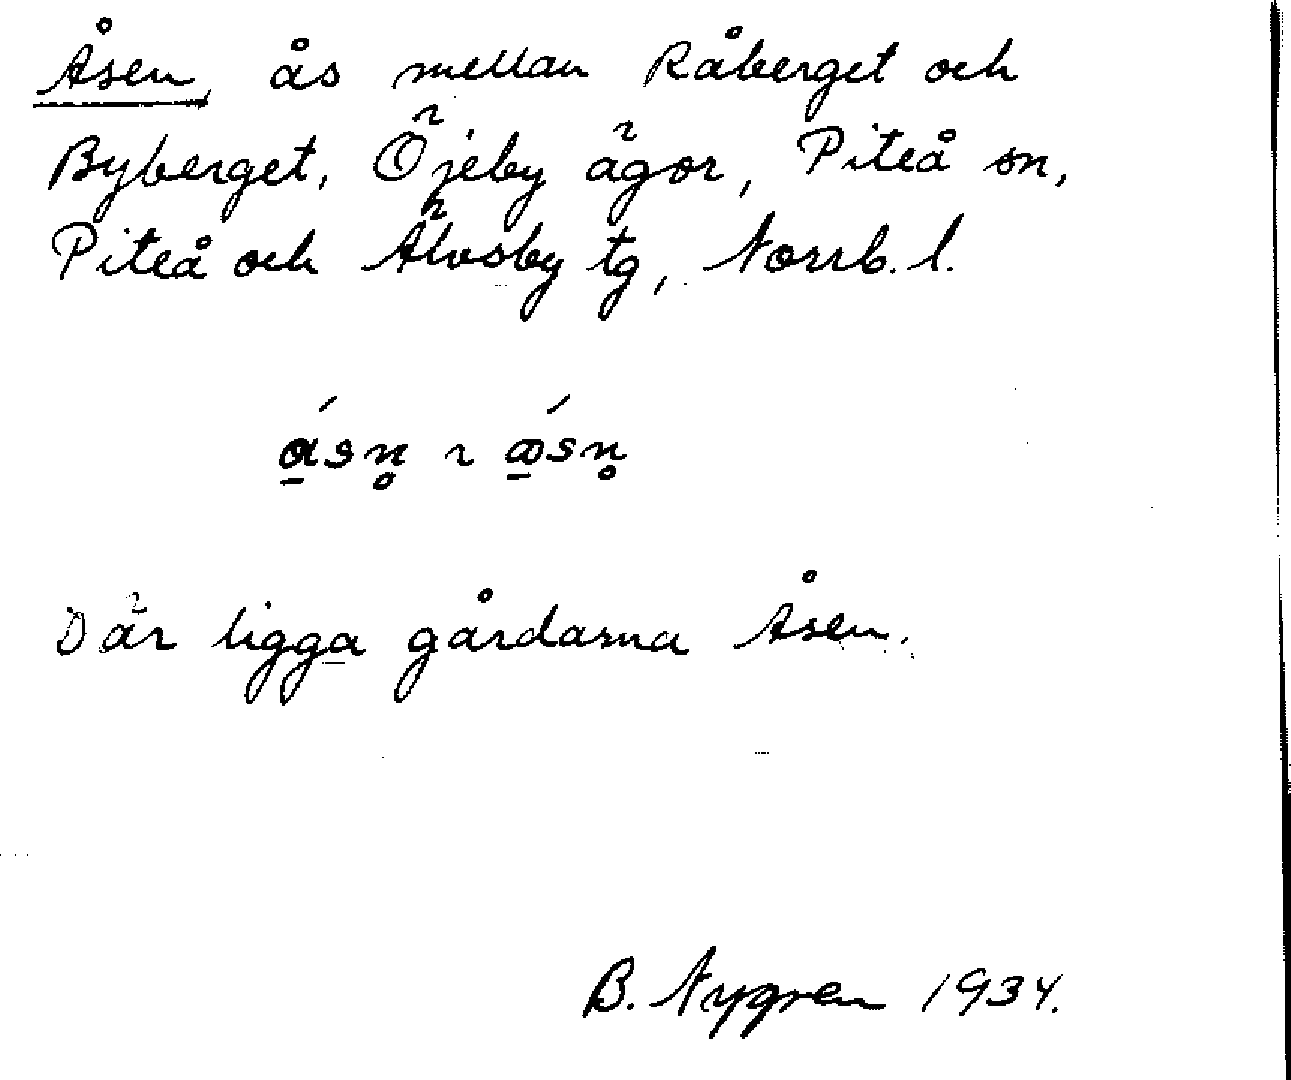 Åsen, ås mellan Råberget och
Byberget, Öjeby ägor, Piteå sn,
Piteå och Älvsby tg, Norrb. l.
ɑ̱́sn̥ ~ œ̱́sn̥
Där ligga gårdarna Åsen.
B. Nygren 1934.